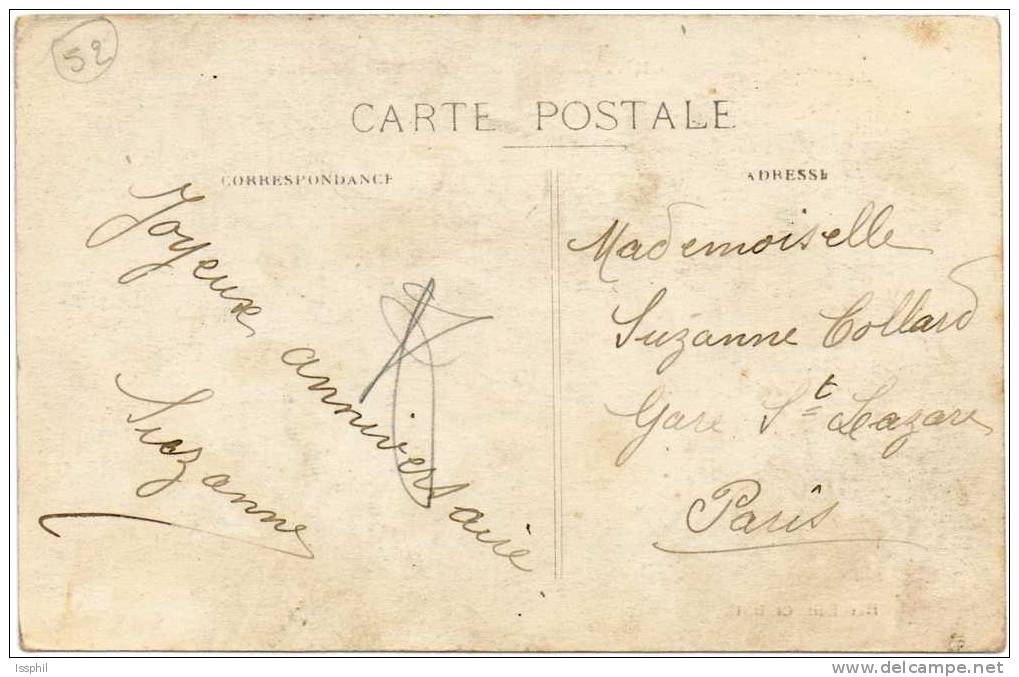 52
CARTE POSTALE
CORRESPONDANCE
ADRESSE
Joyeux anniversaire
Suzanne
Mademoiselle
Suzanne Collard
Gare St Lazare
Paris
Issphil
www.delcampe.net